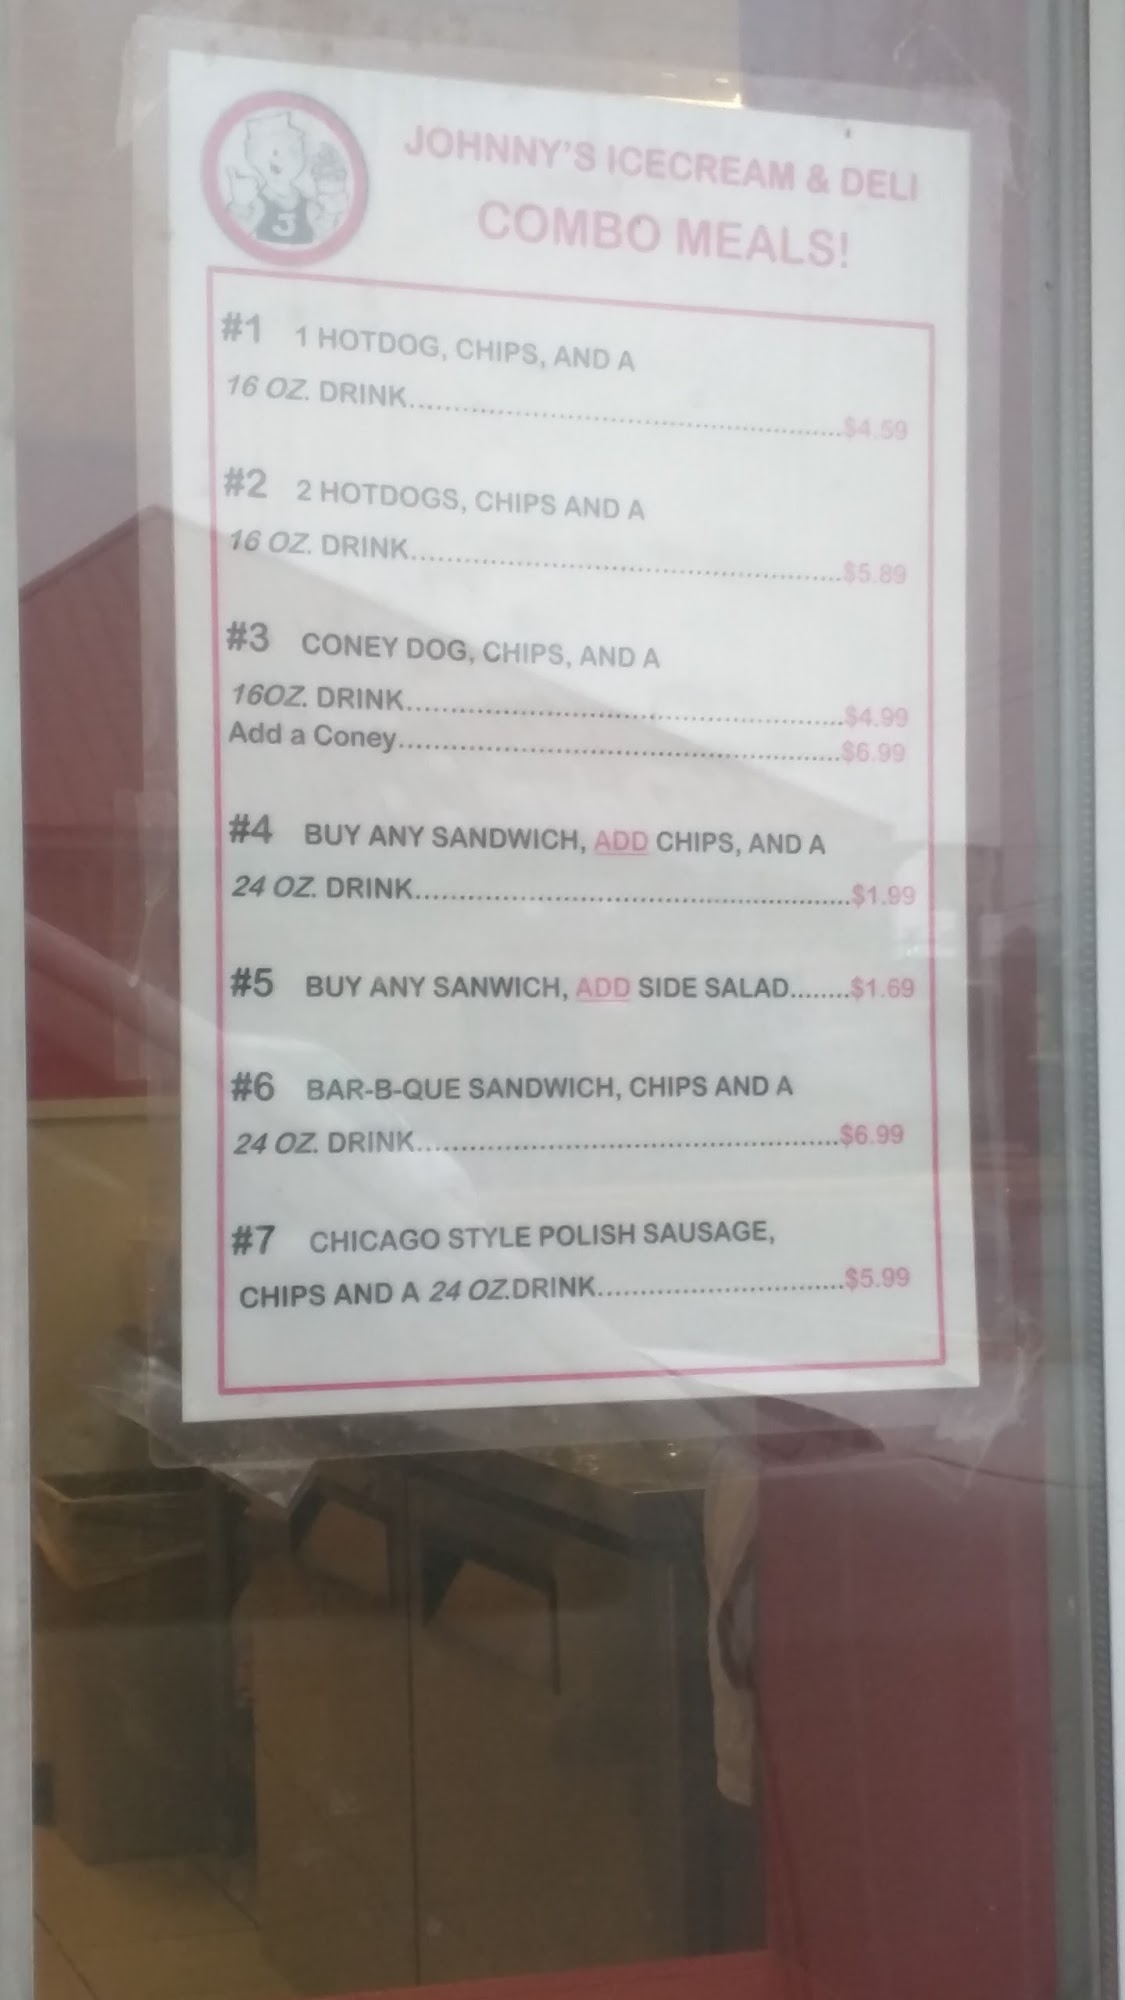 J
JOHNNY'S ICECREAM & DELI
COMBO MEALS!
#1 1 HOTDOG, CHIPS, AND A
16 OZ. DRINK..................................................$4.59
#2 2 HOTDOGS, CHIPS AND A
16 OZ. DRINK..................................................$5.89
#3 CONEY DOG, CHIPS, AND A
16OZ. DRINK..................................................$4.99
Add a Coney..................................................$6.99
#4 BUY ANY SANDWICH, ADD CHIPS, AND A
24 OZ. DRINK..................................................$1.99
#5 BUY ANY SANWICH, ADD SIDE SALAD........$1.69
#6 BAR-B-QUE SANDWICH, CHIPS AND A
24 OZ. DRINK..................................................$6.99
#7 CHICAGO STYLE POLISH SAUSAGE,
CHIPS AND A 24 OZ.DRINK..............................$5.99